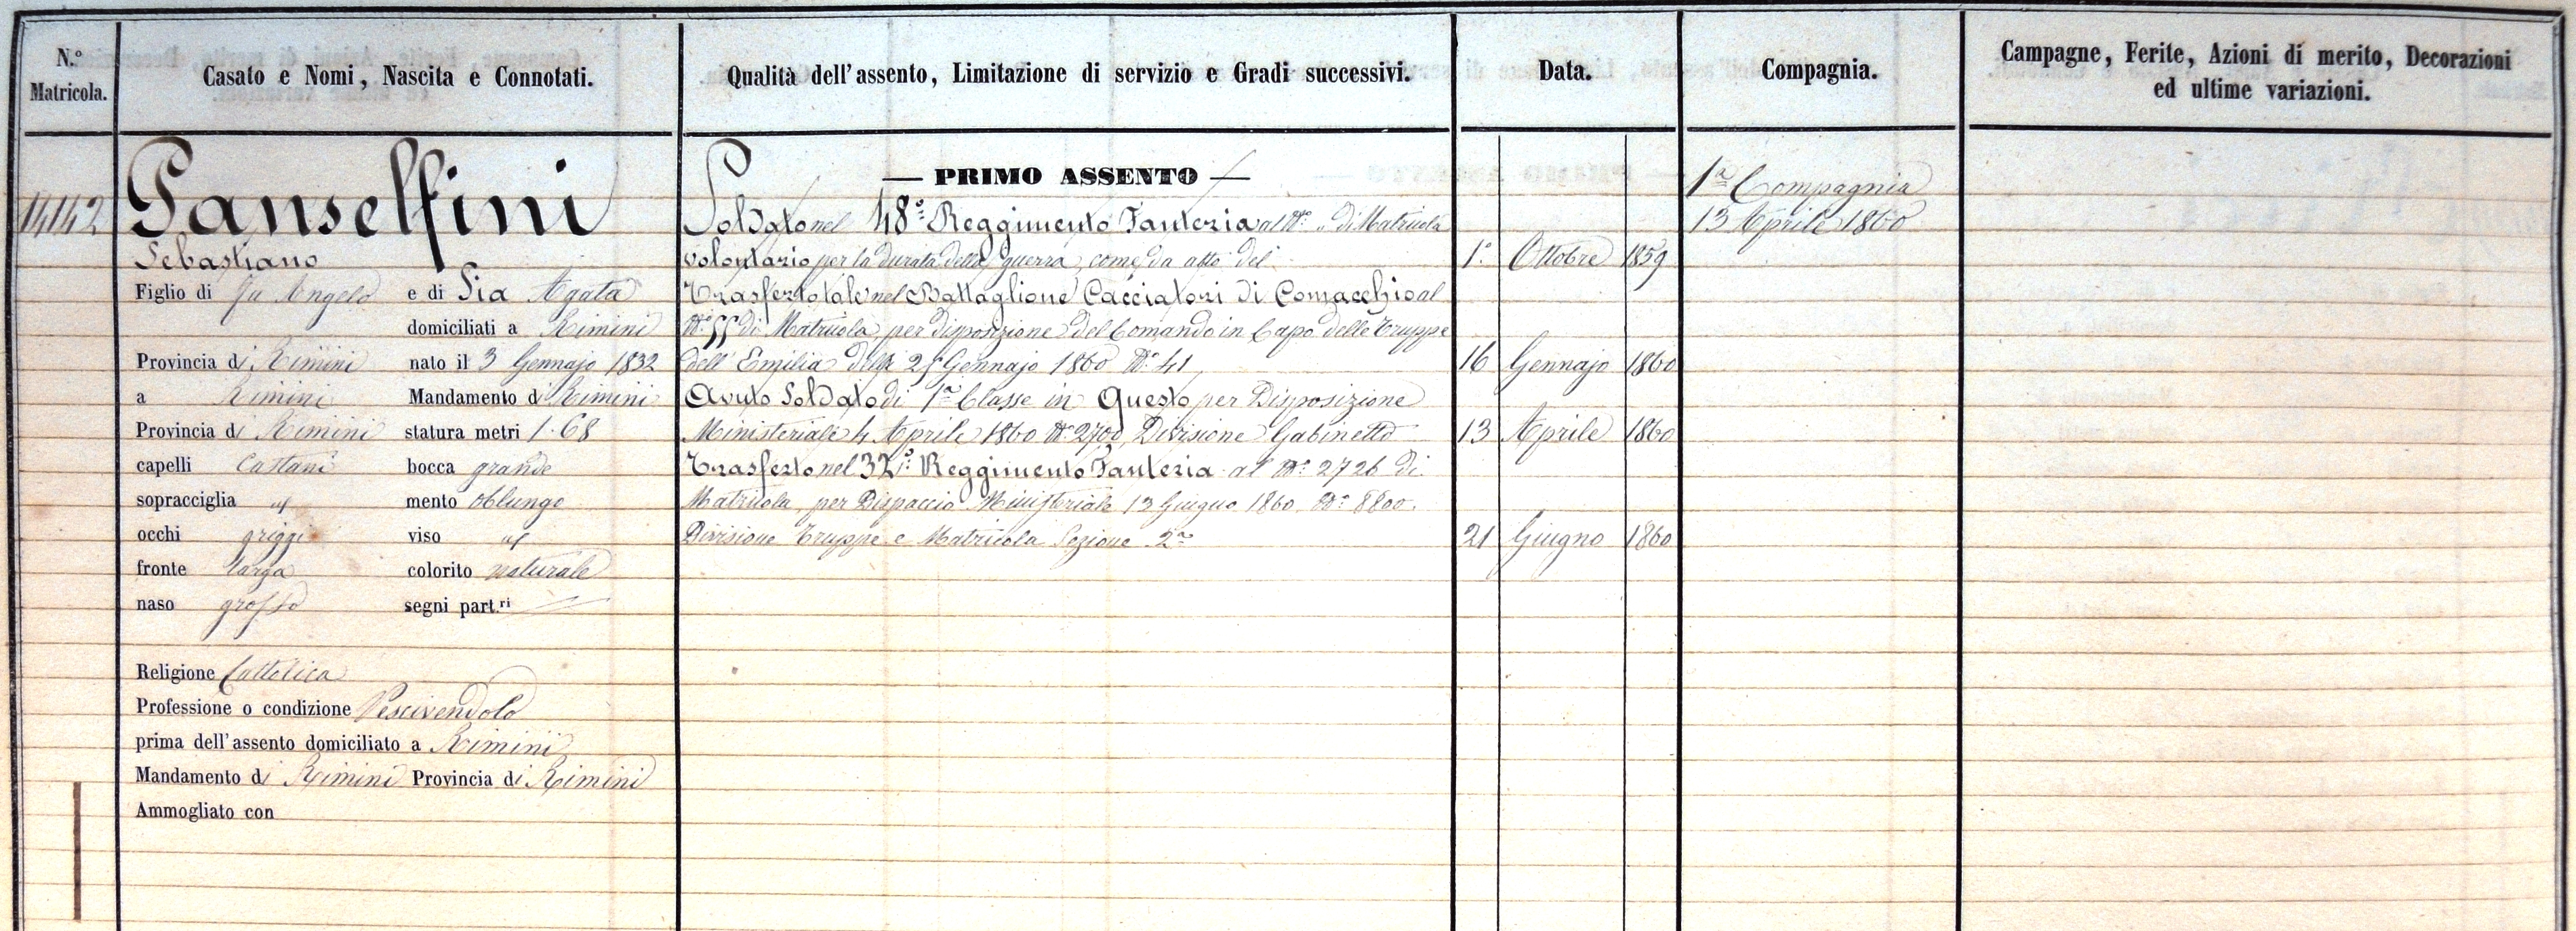 N.° Matricola.
Casato e Nomi, Nascita e Connotati.
Qualità dell'assento, Limitazione di servizio e Gradi successivi.
Data.
Compagnia.
Campagne, Ferite, Azioni di merito, Decorazioni
ed ultime variazioni.
14142
Panselfini
Sebastiano
Figlio di fu Angelo e di Pia Agata
domiciliati a Rimini
Provincia di Rimini nato il 3 Gennajo 1832
a Rimini Mandamento di Rimini
Provincia di Rimini statura metri 1.68
capelli Castani bocca grande
sopracciglia id mento oblungo
occhi griggi viso id
fronte larga colorito naturale
naso grosso segni part.ri
Religione Cattolica
Professione o condizione Pescivendolo
prima dell'assento domiciliato a Rimini
Mandamento di Rimini Provincia di Rimini
Ammogliato con
— PRIMO ASSENTO —
Soldato nel 48° Reggimento Fanteria al N° „ di Matricola
volontario per la durata della guerra, come da atto del 1° Ottobre 1859
Trasferto tale nel Battaglione Cacciatori di Comacchio al
di Matricola, per disposizione del Comando in Capo delle Truppe
dell'Emilia delli Gennajo 1860 N° 41 16 Gennajo 1860
Avuto Soldato di 1ª Classe in Questo per Disposizione
Ministeriale 4 Aprile 1860 N° 2700, Divisione Gabinetto 13 Aprile 1860
Trasferto nel 32° Reggimento Fanteria al N° 2726 di
Matricola, per Dispaccio Ministeriale 13 Giugno 1860 N° 8800.
Divisione Truppe e Matricola Sezione 2ª 21 Giugno 1860
1ª Compagnia
13 Aprile 1860